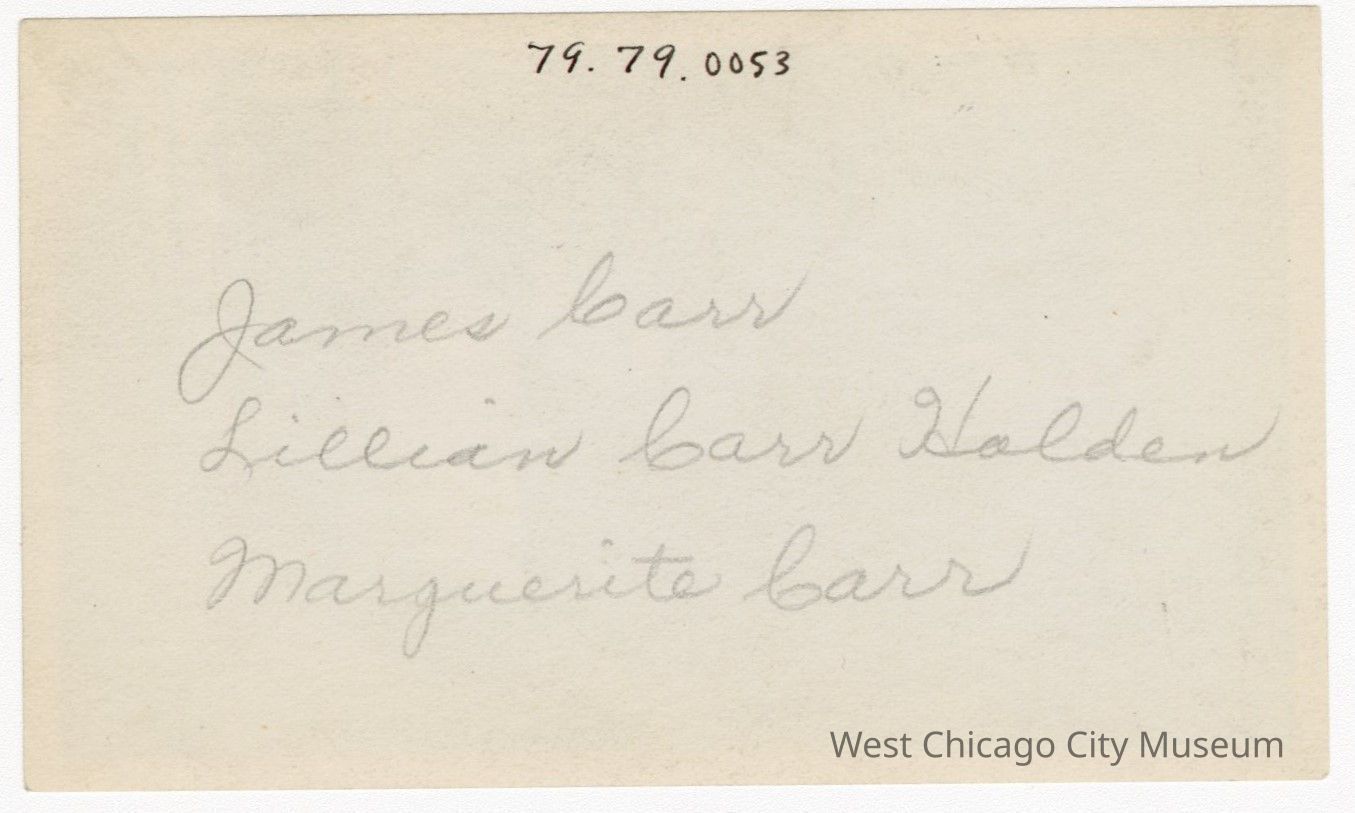 79.79.0053
James Carr
Lillian Carr Holden
Marguerite Carr
West Chicago City Museum